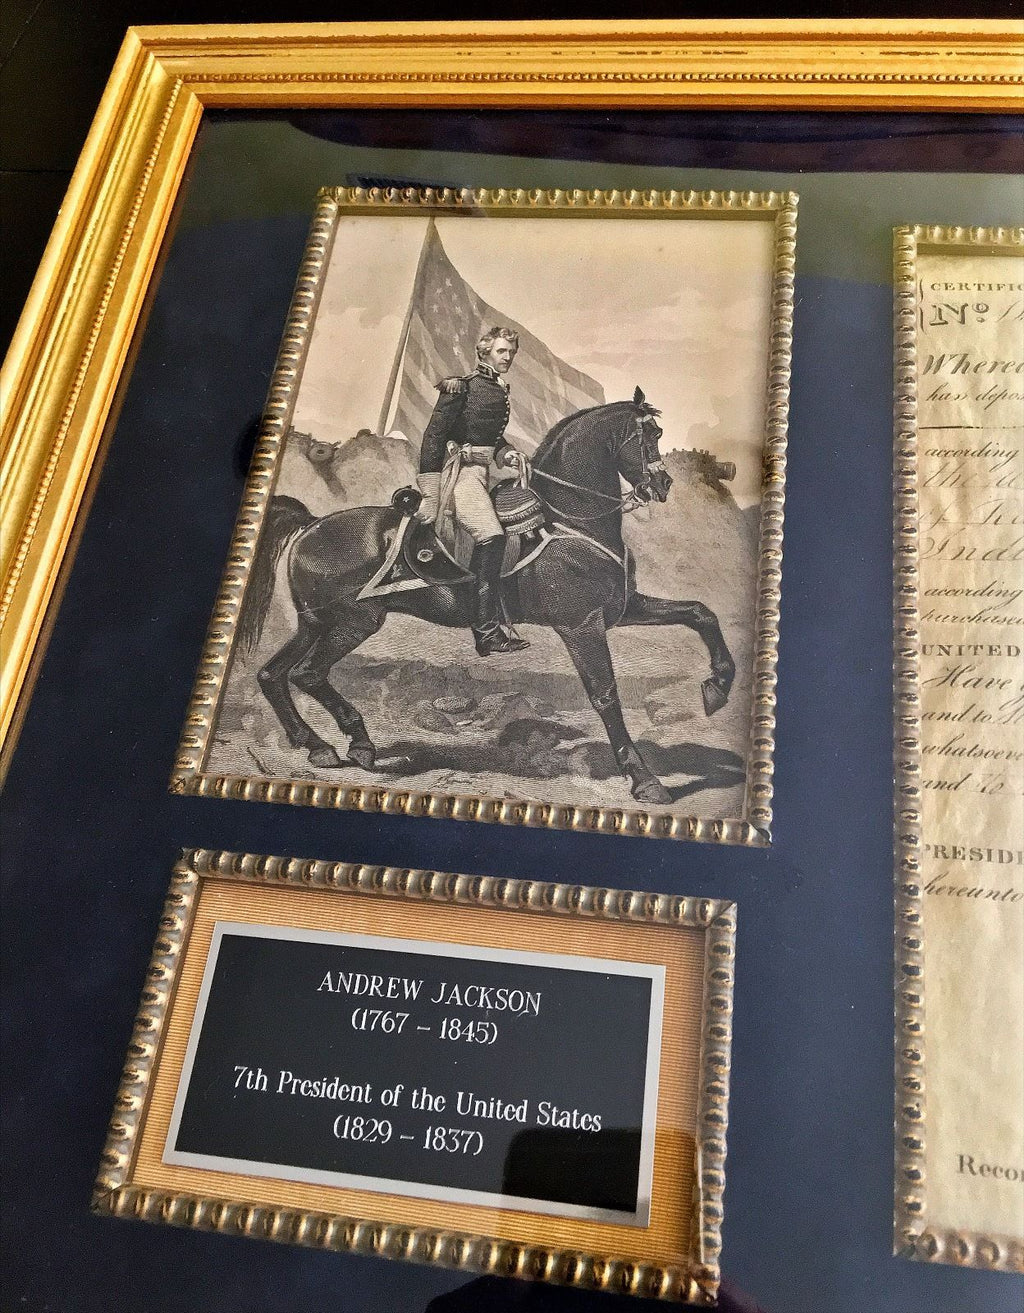 ANDREW JACKSON
(1767 – 1845)
7th President of the United States
(1829 – 1837)
CERTIFIC
Nº
Wherea
has depos
according
Indi
according
purchased
UNITED
Have g
and to
whatsoever
and
PRESIDE
hereunto
Recor